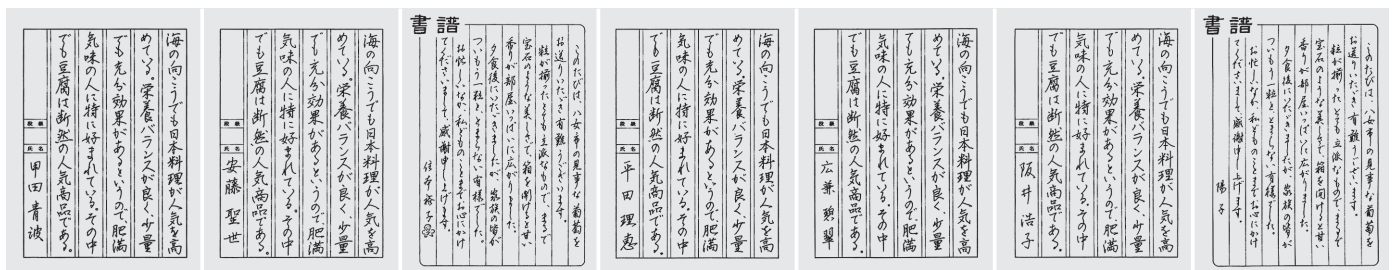 海の向こうでも日本料理が人気を高
めている。栄養バランスが良く、少量
でも充分効果があるというので、肥満
気味の人に特に好まれている。その中
でも豆腐は断然の人気商品である。
段級
氏名
甲田青波
海の向こうでも日本料理が人気を高
めている。栄養バランスが良く、少量
でも充分効果があるというので、肥満
気味の人に特に好まれている。その中
でも豆腐は断然の人気商品である。
段級
氏名
安藤聖世
書譜
このたびは、八女市の見事な葡萄を
お送りいただき有難うございます。
粒が揃ったとても立派なもので、まるで
宝石のような美しさで、箱を開けると甘い
香りが部屋いっぱいに広がりました。
夕食後にいただきましたが、家族の皆が
ついもう一粒と、とまらない有様でした。
お忙しいなか、私どものことまでお心にかけ
てくださいまして、感謝申し上げます。
裕子
海の向こうでも日本料理が人気を高
めている。栄養バランスが良く、少量
でも充分効果があるというので、肥満
気味の人に特に好まれている。その中
でも豆腐は断然の人気商品である。
段級
氏名
平田理恵
海の向こうでも日本料理が人気を高
めている。栄養バランスが良く、少量
でも充分効果があるというので、肥満
気味の人に特に好まれている。その中
でも豆腐は断然の人気商品である。
段級
氏名
広兼碧翠
海の向こうでも日本料理が人気を高
めている。栄養バランスが良く、少量
でも充分効果があるというので、肥満
気味の人に特に好まれている。その中
でも豆腐は断然の人気商品である。
段級
氏名
阪井浩子
書譜
このたびは、八女市の見事な葡萄を
お送りいただき有難うございます。
粒が揃ったとても立派なもので、まるで
宝石のような美しさで、箱を開けると甘い
香りが部屋いっぱいに広がりました。
夕食後にいただきましたが、家族の皆が
ついもう一粒と、とまらない有様でした。
お忙しいなか、私どものことまでお心にかけ
てくださいまして、感謝申し上げます。
陽子